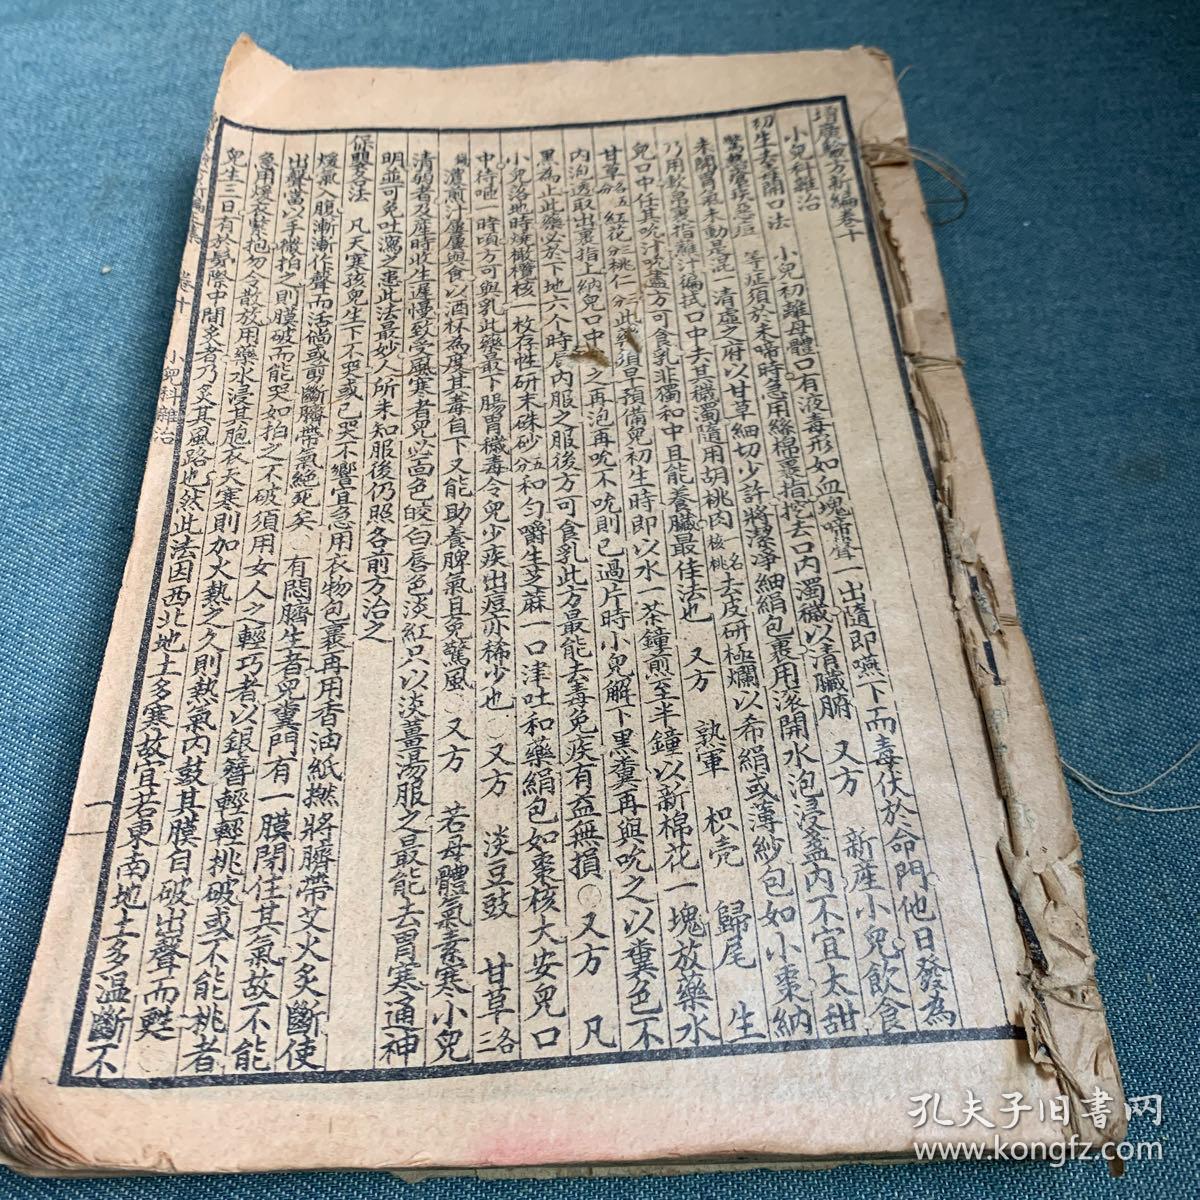 增廣驗方新編卷十
小兒科雜治
初生去毒開口法　小兒初離母體口有液毒形如血塊啼聲一出隨即嚥下而毒伏於命門他日發為
驚熱瘡痰惡痘　等症須於未啼時急用綿裹指挖去口內濁穢以清臟腑　又方　新產小兒飲食
未開胃氣未動是混一清虛之府以甘草細切少許將潔淨細絹包裹用滾開水泡浸盞內不宜太甜
乃用軟帛裹指蘸汁徧拭口中去其穢濁隨用胡桃肉一名核桃去皮研極爛以希絹或薄紗包如小棗納
兒口中任其吮汁吮盡方可食乳非獨和中且能養臟最佳法也　又方　熟軍　枳壳　歸尾　生
甘草各五分紅花三分桃仁三分此藥須早預備兒初生時即以水一茶鐘煎至半鐘以新棉花一塊放藥水
內泡透取出裹指上納兒口中吮之再泡再吮不吮則已過片時小兒解下黑糞再與吮之以糞色不
黑為止此藥必於下地六个時辰內服之服後方可食乳此方最能去毒免疾有益無損○又方　凡
小兒落地時燒橄欖核一枚存性研末硃砂五分和勻嚼生芝蔴一口津吐和藥絹包如棗核大安兒口
中待咂一時頃方可與乳此藥最下腸胃穢毒令兒少疾出痘亦稀少也　又方　淡豆豉　甘草各三
錢濃煎汁屢屢與食以酒杯為度其毒自下又能助養脾氣且免驚風　又方　若母體氣素寒小兒
清弱者及產時收生遲慢致受風寒者兒必面色㿠白唇色淡紅只以淡薑湯服之最能去胃寒通神
明並可免吐瀉之患此法最妙人所未知服後仍照各前方治之
保嬰各法　凡天寒孩兒生下不哭或已哭不響宜急用衣物包裹再用香油紙撚將臍帶艾火炙斷使
煖氣入腹漸漸作聲而活倘或剪斷臍帶氣絕死矣　有悶臍生者兒糞門有一膜閉住其氣故不能
出聲富以手微拍之則膜破而能哭如拍之不破須用女人之輕巧者以銀簪輕輕挑破或不能挑者
急用煖衣緊抱勿令散放用藥水浸其胞衣天寒則加火熱之久則熱氣內鼓其膜自破出聲而甦
兒生三日有於鬢際中間多者乃炙其風路也然此法因西北地土多寒故宜若東南地土多溫斷不
卷十
小兒科雜治
一
孔夫子旧書网
www.kongfz.com